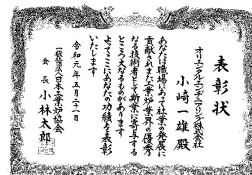 表彰状
オリエンタルエンヂニアリング株式会社
小崎一雄殿
あなたは職務にあって社業の発展に
貢献されまた工業炉業界の優秀
なる技術者として斯業に寄与する
ところ大なるものがあります
よってここにあなたの功績を表彰
いたします
令和元年五月二十二日
一般社団法人日本工業炉協会
会長 小林太郎